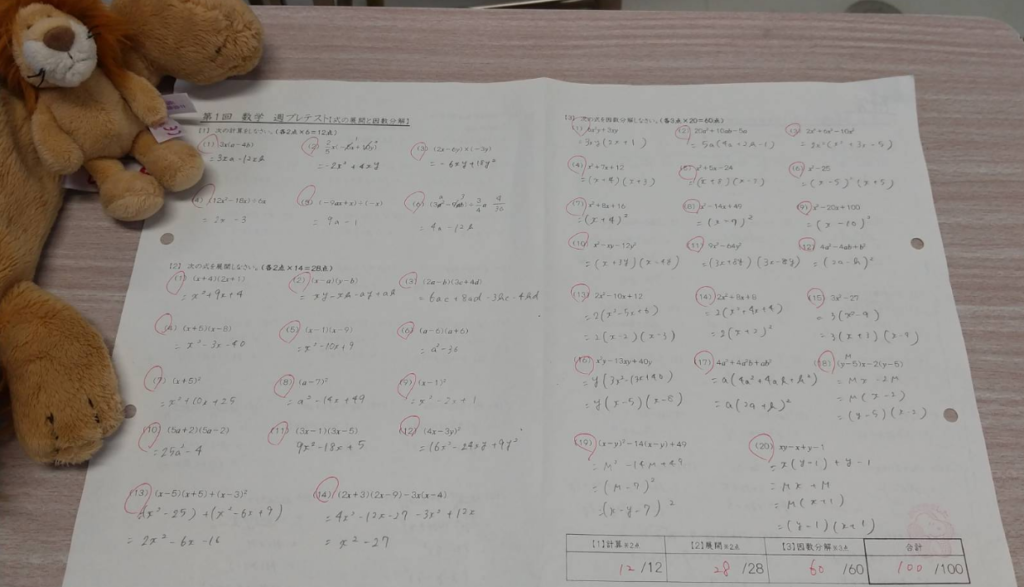 第1回 数学 週プレテスト【式の展開と因数分解】
【1】次の計算をしなさい。(各2点×6=12点)
(1) 3a(a-4b)
(3) (2x-6y)×(-3y)
= -6xy+18y²
(4) (12x²-18x)÷6x
= 2x-3
(5) (-9ax+x)÷(-x)
= 9a-1
= 4a-12b
【2】次の式を展開しなさい。(各2点×14=28点)
(1) (x+4)(2x+1)
(2) (x-a)(y-b)
= xy-xb-ay+ab
(3) (2a-b)(3c+4d)
= 6ac+8ad-3bc-4bd
(4) (x+5)(x-8)
= x²-3x-40
(5) (x-1)(x-9)
= x²-10x+9
(6) (a-6)(a+6)
= a²-36
(7) (x+5)²
= x²+10x+25
(8) (a-7)²
= a²-14a+49
(9) (x-1)²
= x²-2x+1
(10) (5a+2)(5a-2)
= 25a²-4
(11) (3x-1)(3x-5)
9x²-18x+5
(12) (4x-3y)²
= 16x²-24xy+9y²
(13) (x-5)(x+5)+(x-3)²
(x²-25)+(x²-6x+9)
= 2x²-6x-16
(14) (2x+3)(2x-9)-3x(x-4)
= 4x²-12x-27-3x²+12x
= x²-27
【3】次の式を因数分解しなさい。(各3点×20=60点)
(1) 6x²y+3xy
= 3xy(2x+1)
(2) 20a²+10ab-5a
= 5a(4a+2b-1)
(4) x²+7x+12
= (x+4)(x+3)
(5) x²+5x-24
= (x+8)(x-3)
(6) x²-25
= (x-5)(x+5)
(7) x²+8x+16
= (x+4)²
(8)
(9) x²-20x+100
= (x-10)²
(10) x²-xy-12y²
= (x+3y)(x-4y)
(11) 9x²-64y²
= (3x+8y)(3x-8y)
(12) 4a²-4ab+b²
= (2a-b)²
(13) 2x²-10x+12
= 2(x²-5x+6)
= 2(x-2)(x-3)
(14) 2x²+8x+8
= 2(x²+4x+4)
= 2(x+2)²
(15) 3x²-27
= 3(x²-9)
= 3(x+3)(x-3)
(16) x²y-13xy+40y
= y(x-5)(x-8)
(17) 4a³+4a²b+ab²
= a(4a²+4ab+b²)
= a(2a+b)²
(18) x(y-5)-2(y-5)
= Mx-2M
= M(x-2)
= (y-5)(x-2)
(19) (x-y)²-14(x-y)+49
= M²-14M+49
= (M-7)²
= (x-y-7)²
(20) xy-x+y-1
= x(y-1)+y-1
= Mx+M
= M(x+1)
= (y-1)(x+1)
【1】計算※2点 【2】展開※2点 【3】因数分解※3点 合計
12/12 28/28 60/60 100/100